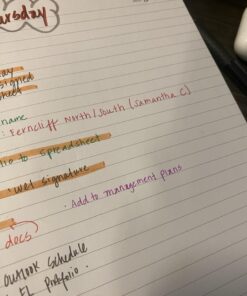 rsday
ay
signed
sheet
name
: Ferncliff North/South (Samantha C)
lio to spreadsheet
wet signature
· Add to management plans
docs
Outlook Schedule
FL Portfolio.